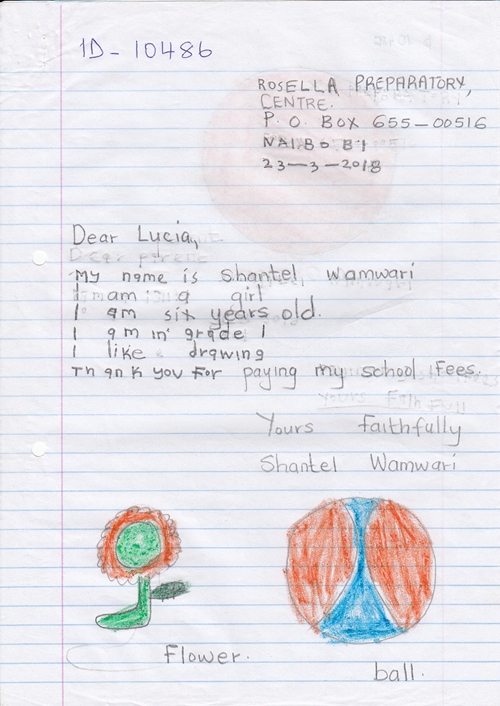 1D-10486
ROSELLA PREPARATORY,
CENTRE.
P. O. BOX 655-00516
NAIROBI
23-3-2018
Dear Lucia,
My name is Shantel Wamwari
I am a girl
I am six years old.
I am in grade 1
I like drawing
Thank you for paying my school fees.
Yours Faithfully
Shantel Wamwari
Flower.
ball.